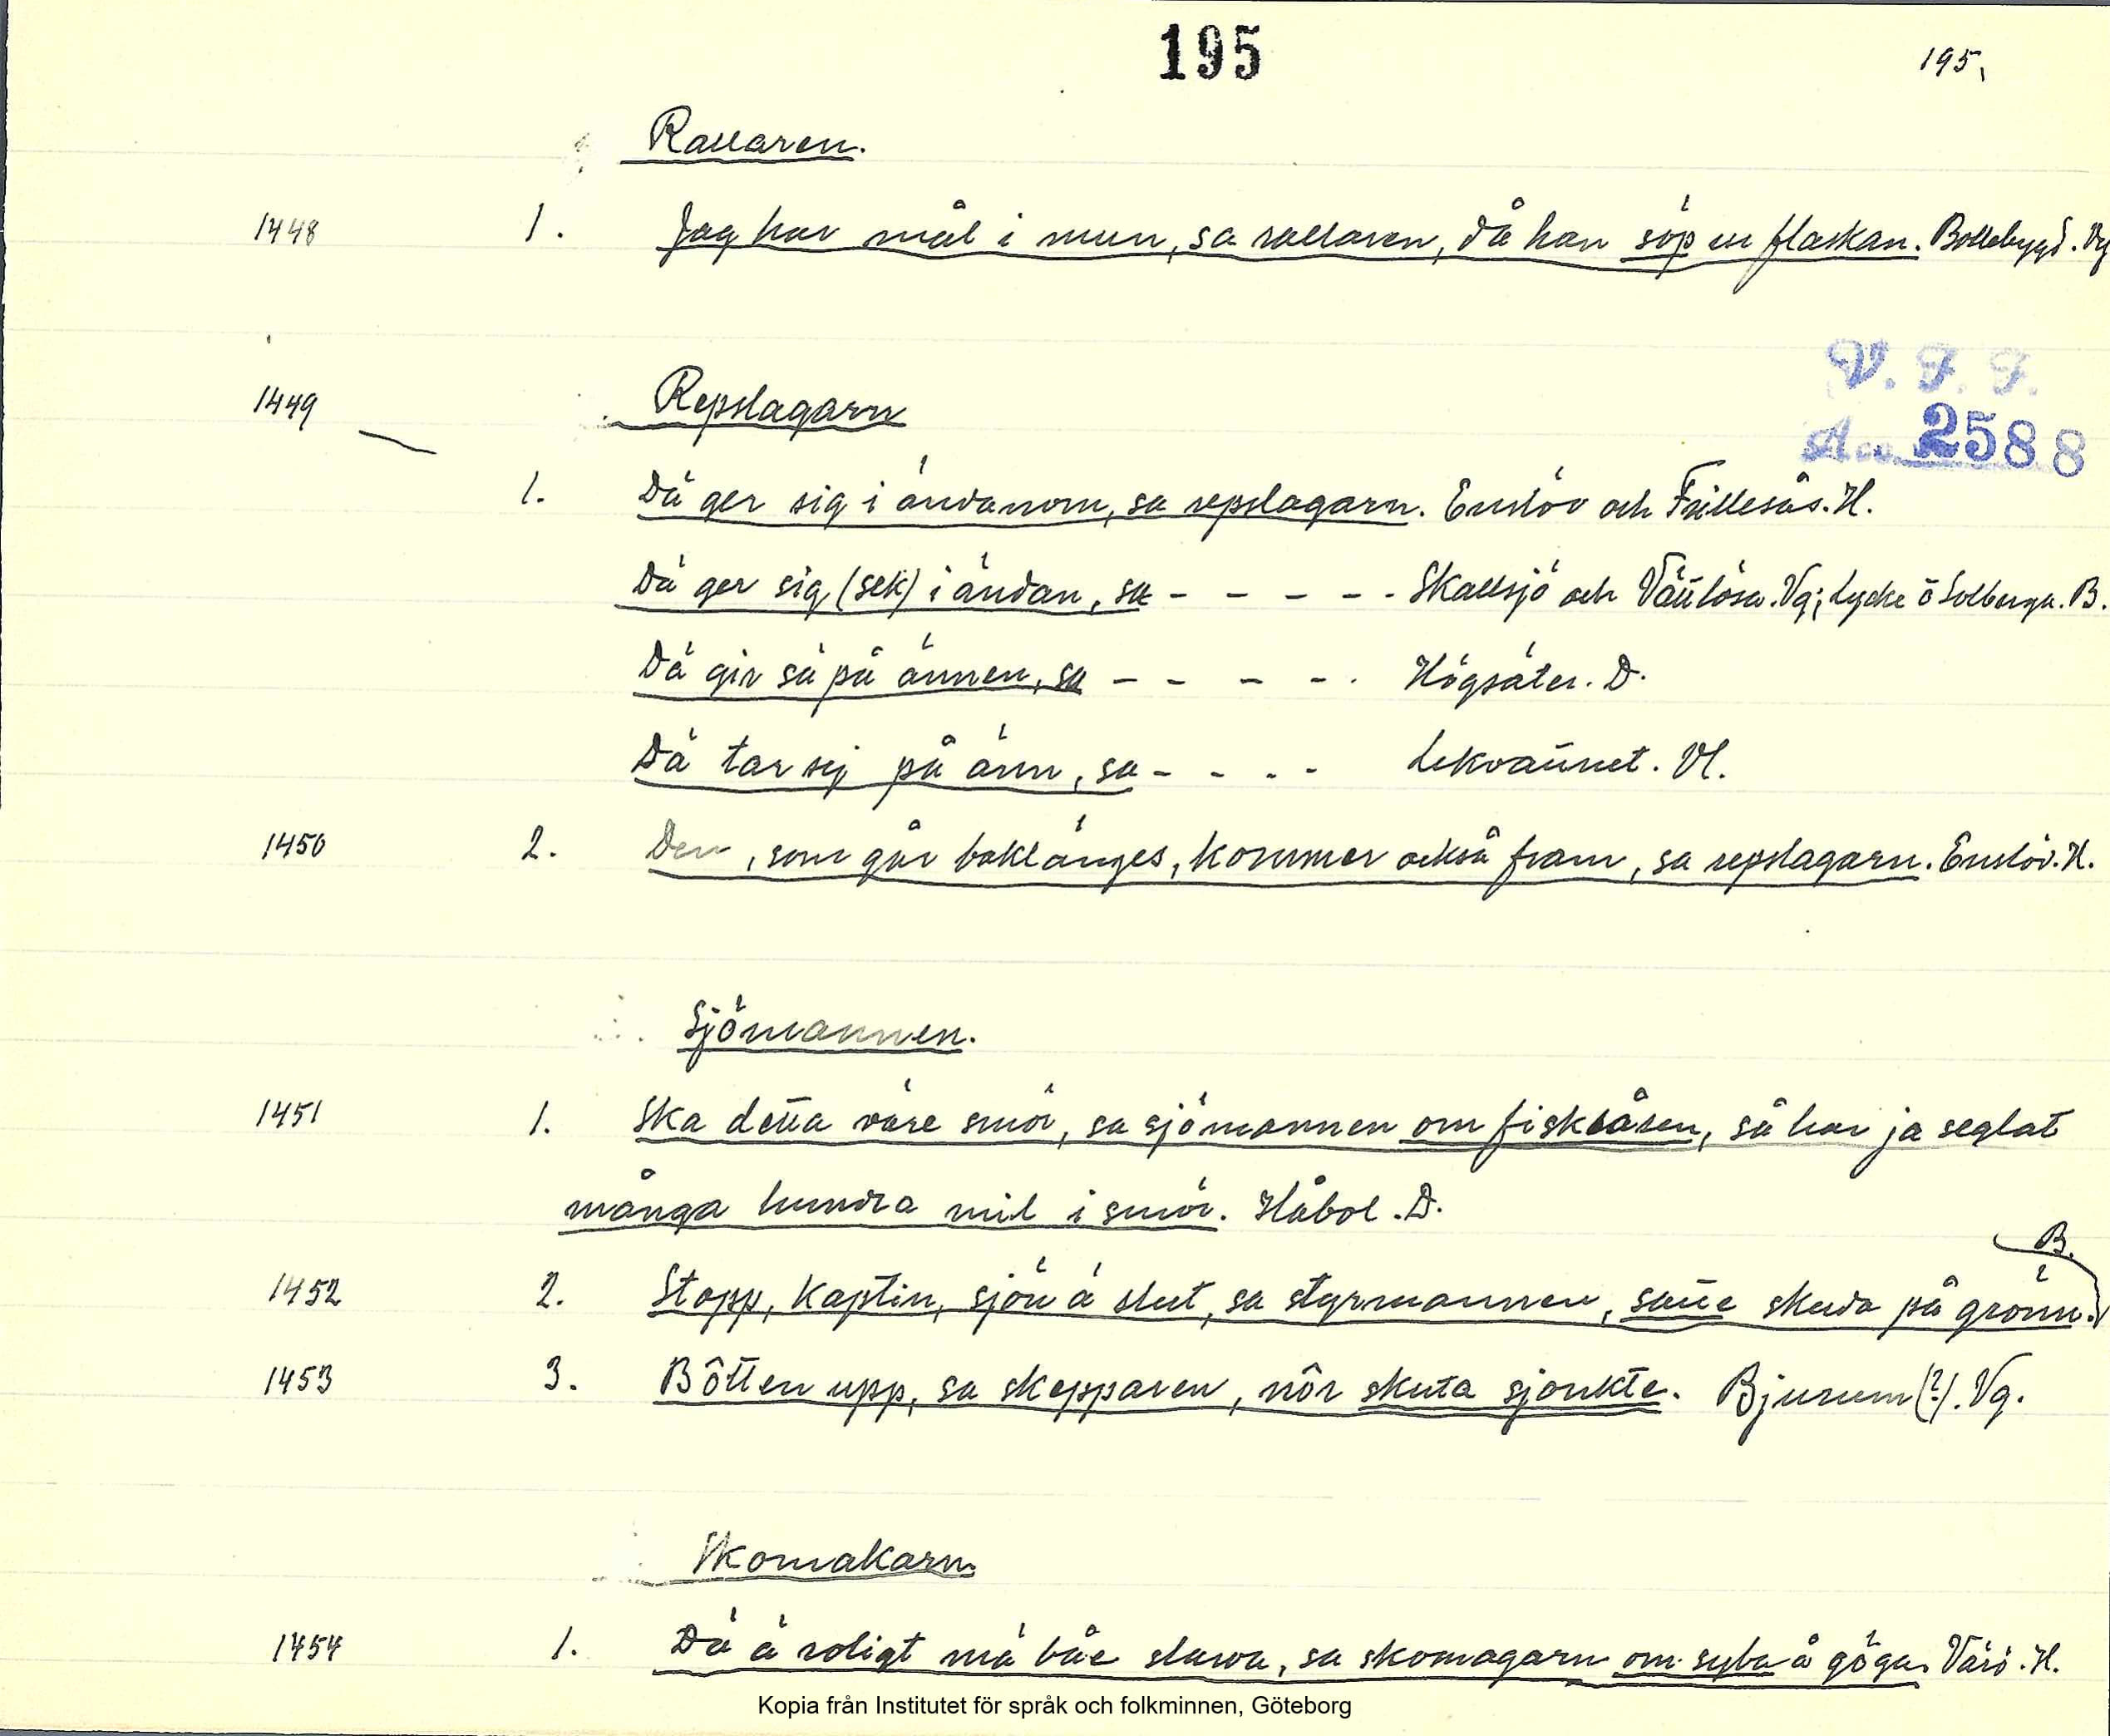 195
195.
Rallaren.
1448 1. Jag har mål i mun, sa rallaren, då han söp ur flaskan. Bollebygd. Vg
V. F. F.
1449 Repslagarn
Acc. 2588
1. Dä ger sig i ändanom, sa repslagarn. Enslöv och Frillesås. H.
Dä ger sig (sek) i ändan, sa - - - - - Skallsjö och Vättlösa. Vg; Lycke o Solberga. B.
Dä gir sä på ännen, sa - - - - . Högsäter. D.
Dä tar sij på änn, sa - - - - Lekvattnet. Vl.
1450 2. Den, som går baklänges, kommer också fram, sa repslagarn. Enslöv. H.
Sjömannen.
1451 1. Ska detta väre smör, sa sjömannen om fisklåsen, så har ja seglat
många hundra mil i smör. Håbol. D.
B.
1452 2. Stopp, kaptin, sjön ä slut, sa styrmannen, satte skuda på grönn.
1453 3. Bôtten upp, sa skepparen, nôr skuta sjonkte. Bjurum (?). Vg.
Skomakarn.
1454 1. Dä ä roligt mä båe slawa, sa skomagarn om syba å göga. Värö. H.
Kopia från Institutet för språk och folkminnen, Göteborg